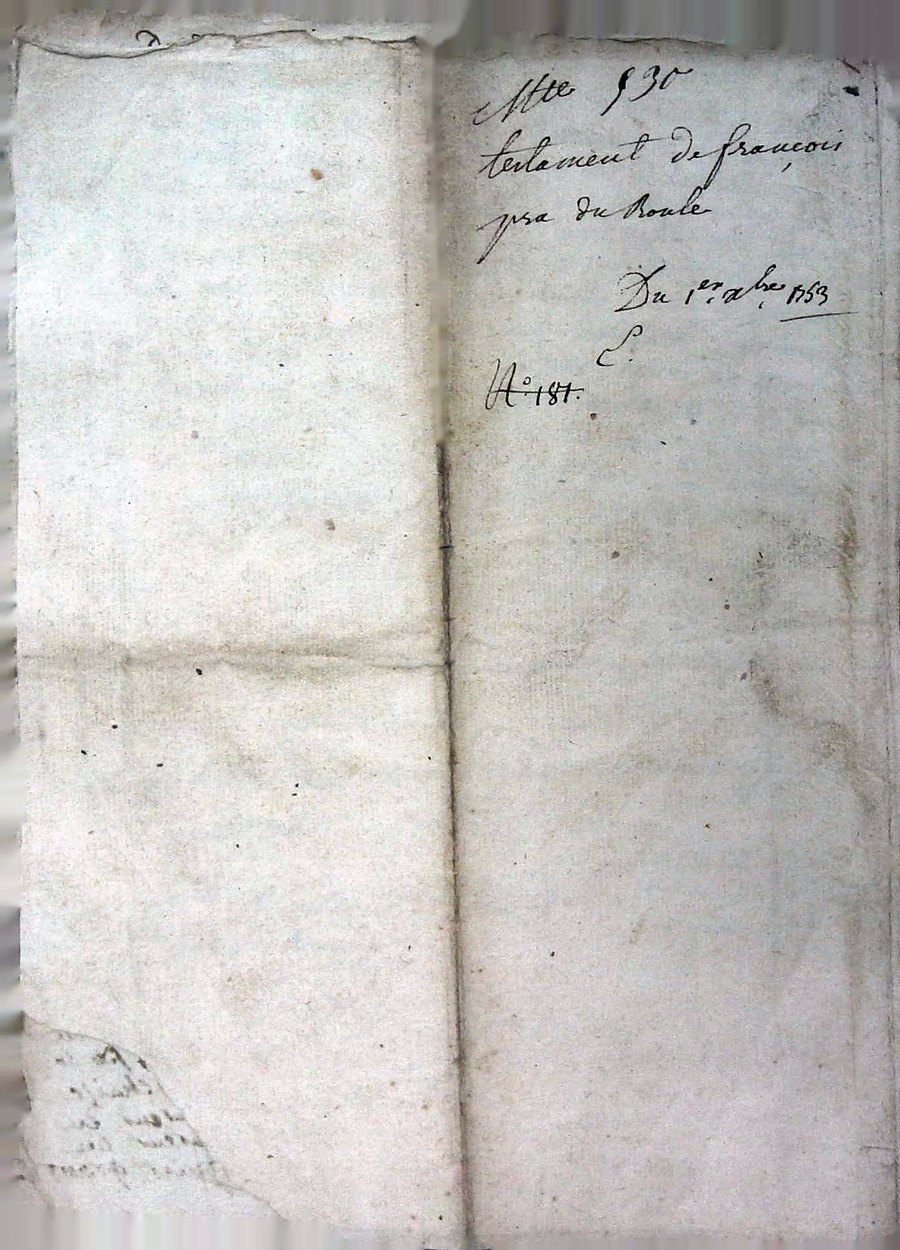 Mte 530
testament de françois
pra du Roule
Du 1er. xbre. 1753
E.
N.° 181.